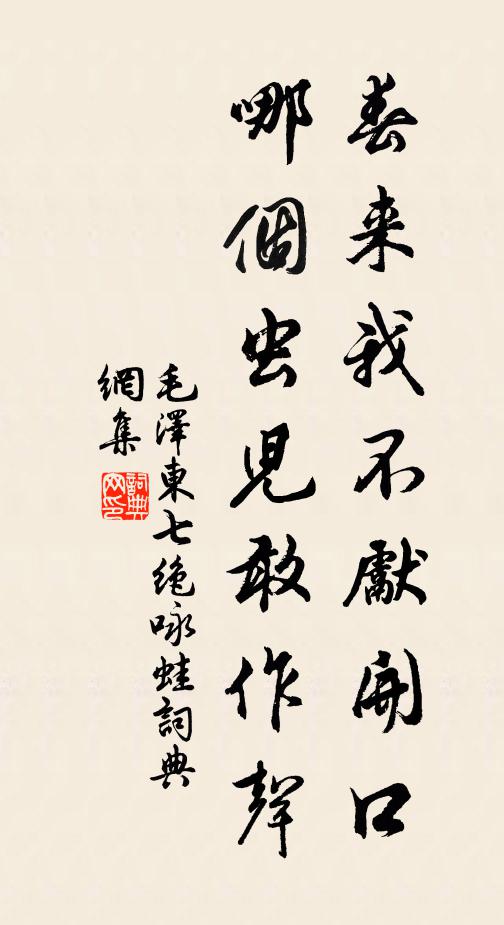 春来我不獻開口
哪個虫兒敢作聲
毛澤東七絶咏蛙詞典
網集
詞典
网印